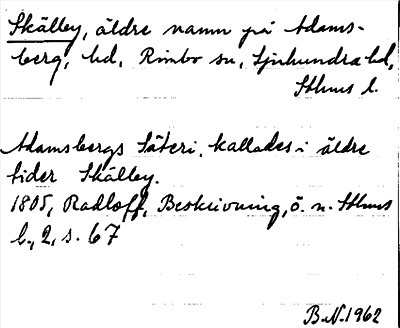 Skälley, äldre namn på Adams-
berg, hd, Rimbo sn, Sjuhundra hd,
Sthms l.
Adamsbergs Säteri, kallades i äldre
tider Skälley.
1805, Radloff, Beskrivning, ö. n. Sthms
l., 2, s. 67
B.N. 1962